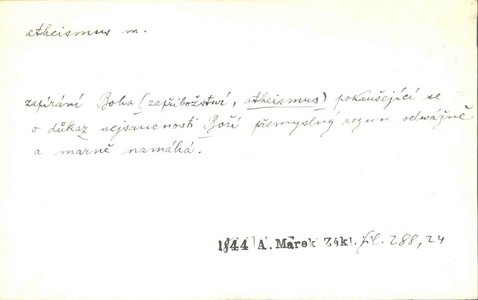 atheismus m.
zapírání Boha (zapřibožství, atheismus) pokaušející se
o důkaz nejsoucnosti Boží přemyslný rozum odvážně
a marně namáhá.
1844 A. Marek Zákl. fil. 288, 24